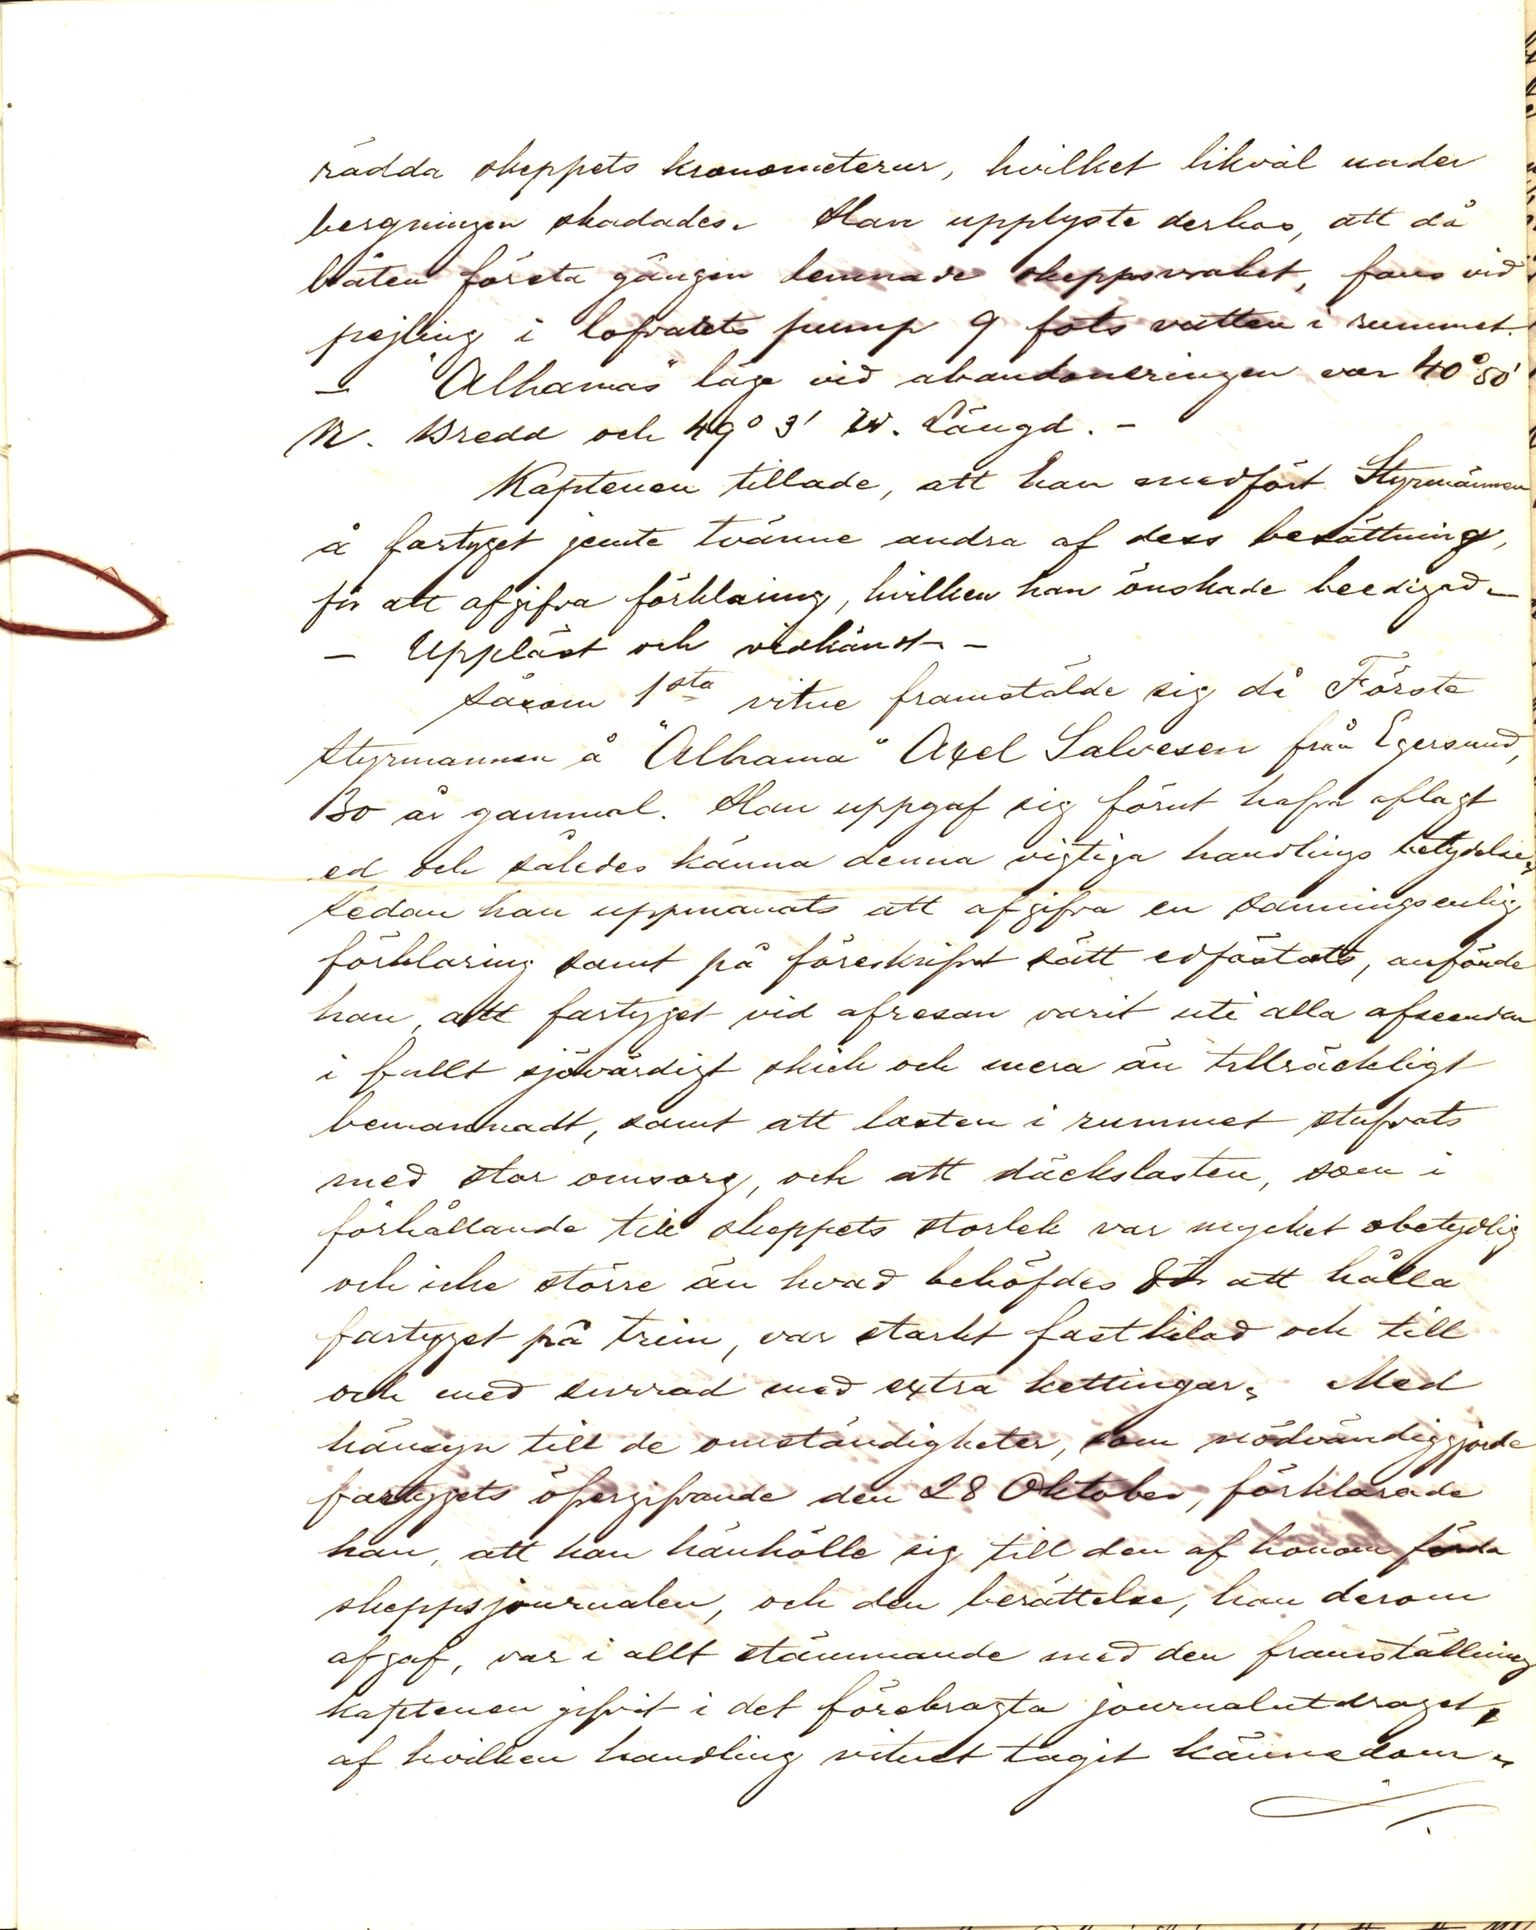 rädda skeppets kronometerur, hvilket likväl under
bergningen skadades. Han upplyste derhos, att då
båten första gången lemnade skeppsvraket, fans vid
pejling i lofvarts pump 9 fots vatten i rummet.
– "Alhamas" läge vid abandoneringen var 40° 50'
N. Bredd och 49° 3' W. Längd. –
Kaptenen tillade, att han medfört Styrmannen
å fartyget jemte tvänne andra af dess besättning,
för att afgifva förklaring, hvilken han önskade beedigad –
– Uppläst och vidkänst. –
Såsom 1sta vitne framstälde sig då Förste
Styrmannen å "Alhama" Axel Salvesen från Egersund,
30 år gammal. Han uppgaf sig förut hafva aflagt
ed och således känna denna vigtiga handlings betydelse.
Sedan han uppmanats att afgifva en sanningsenlig
förklaring samt på föreskrifvet sätt edfästats, anförde
han, att fartyget vid afresan varit uti alla afseenden
i fullt sjövärdigt skick och mera än tillräckligt
bemannadt, samt att lasten i rummet stufvats
med stor omsorg, och att däckslasten, som i
förhållande till skeppets storlek var mycket obetydlig
och icke större än hvad behöfdes för att hålla
fartyget på trim, var starkt fastkilad och till
och med surrad med extra kettingar. Med
hänsyn till de omständigheter, som nödvändiggjorde
fartygets öfvergifvande den 28 Oktober, förklarade
han, att han hänhölle sig till den af honom förda
skeppsjournalen, och den berättelse, han derom
afgaf, var i allt stämmande med den framställning
kaptenen gifvit i det förebragta journalutdraget,
af hvilken handling vitnet tagit kännedom.